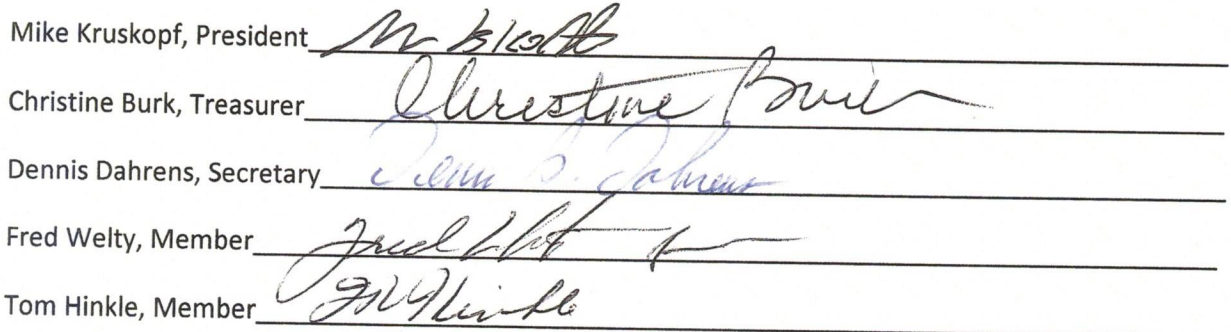 Mike Kruskopf, President
Christine Burk, Treasurer Christine Burk
Dennis Dahrens, Secretary Denn S. Dahrens
Fred Welty, Member Fred
Tom Hinkle, Member Hinkle